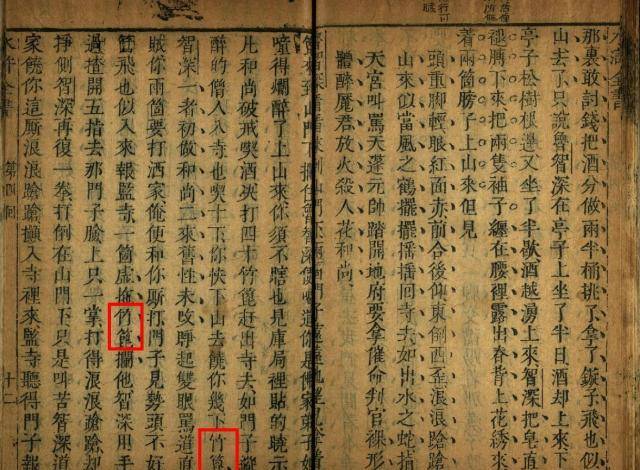 那裏敢討錢把酒分做兩半桶挑了拿了鏇子飛也似
山去了只說魯智深在亭子上坐了半日酒却上來下
亭子松樹根邊又坐了半歇酒越湧上來智深把皂直
褪膊下來把兩隻袖子纏在腰裡露出脊背上花綉來
着兩箇膀子上山來但見
頭重脚輕眼紅面赤前合後仰東倒西歪浪浪蹌蹌
山來似當風之鶴擺擺摇摇回寺去如出水之蛇指
天宮叫罵天蓬元帥踏開地府要拿催命判官裸形
體醉魔君放火殺人花和尚
來到山門下攔住魯智深便喝道你是佛家弟子如
噇得爛醉了上山來你須不瞎也見庫局裡貼的曉示
凡和尚破戒喫酒決打四十竹篦赶出寺去如門子縱
醉的僧人入寺也喫十下你快下山去饒你幾下竹篦
智深一者初做和尚二來舊性未改睜起雙眼罵道直
賊你兩箇要打洒家俺便和你厮打門子見勢頭不好
箇飛也似入來報監寺一箇虚拖竹篦攔他智深用手
過揸開五指去那門子臉上只一掌打得浪浪蹌蹌却
掙側智深再復一拳打倒在山門下只是叫苦智深道
家饒你這厮浪浪蹌蹌攧入寺裡來監寺聽得門子報
水滸全書 第四回 十二